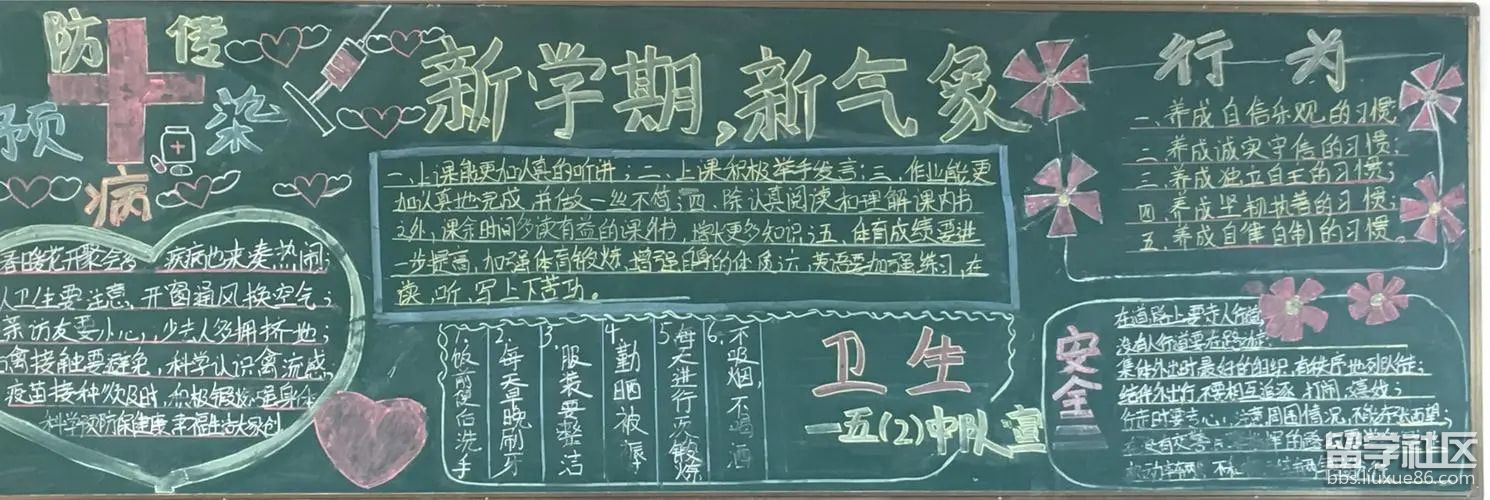 预防传染病
春暖花开聚会多 疾病也来凑热闹;
人卫生要注意,开窗通风换空气;
亲访友要小心,少去人多拥挤地;
禽接触要避免,科学认识禽流感,
疫苗接种 及时,积极锻炼强身体
科学预防保健康 幸福生活大家创
新学期,新气象
一、上课能更加认真的听讲;二、上课积极举手发言;三、作业能更
加认真地完成,并做一丝不苟;四、除认真阅读和理解课内书
之外,课余时间多读有益的课外书,增长更多知识;五、体育成绩要进
一步提高,加强体育锻炼,增强自身的体质;六、英语要加强练习,在
读、听、写上下苦功。
1.饭前便后洗手
2.每天早晚刷牙
3.服装要整洁
4.勤晒被褥
5.每天进行一次锻炼
6.不吸烟,不喝酒
卫生
一五(2)中队宣
行为
一、养成自信乐观的习惯
二、养成诚实守信的习惯;
三、养成独立自主的习惯;
四、养成坚韧执着的习惯;
五、养成自律自制的习惯。
安全
在道路上要走人行道
没有人行道要在路边
集体外出时最好有组织,有秩序地列队行走;
结伴外出行,不要相互追逐、打闹、嬉戏;
行走时要专心,注意周围情况,不能东张西望;
留学社区
bbs.liuxue86.com